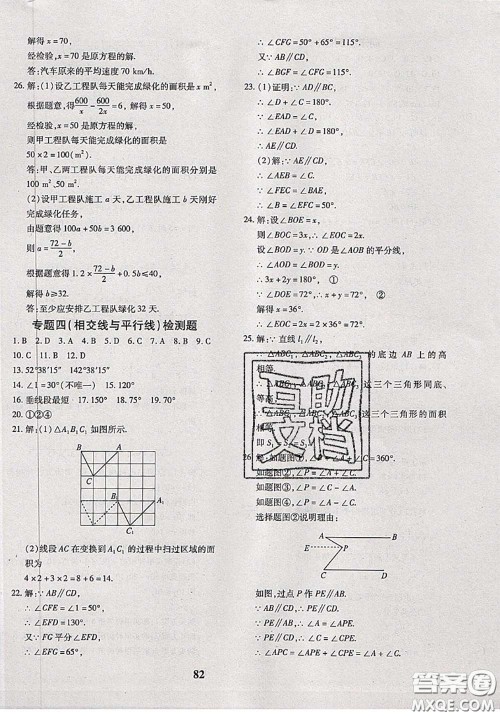 解得 x=70,
经检验,x=70 是原方程的解.
答:汽车原来的平均速度 70 km/h.
26. 解:(1)设乙工程队每天能完成绿化的面积是 x m²,
根据题意,得 600/x - 600/2x = 6,解得 x=50,
经检验,x=50 是原方程的解,
50×2=100(m²).
答:甲、乙两工程队每天能完成绿化的面积分别是 100 m²,50 m².
(2)设甲工程队施工 a 天,乙工程队施工 b 天刚好完成绿化任务,
由题意得 100a+50b=3 600,
则 a = (72-b)/2,
根据题意得 1.2×(72-b)/2+0.5b≤40,
解得 b≥32.
答:至少应安排乙工程队绿化 32 天.
专题四(相交线与平行线)检测题
1. B 2. D 3. A 4. B 5. A 6. A 7. B 8. D 9. C
10. C 11. B 12. D
13. 52°38′15″ 127°38′15″
14. ∠1=30°(不唯一) 15. 120°
16. 垂线段最短 17. 70° 18. 150° 19. 90°
20. ①②④
21. 解:(1)△A₁B₁C₁ 如图所示.
A
B
C
A₁
B₁
C₁
(2)线段 AC 在变换到 A₁C₁ 的过程中扫过区域的面积为
4×2+3×2=8+6=14.
22. 解:∵AB∥CD,
∴∠CFE=∠1=50°,
∴∠EFD=130°.
又∵FG 平分∠EFD,
∴∠EFG=65°,
∴∠CFG=50°+65°=115°.
又∵AB∥CD,
∴∠BGF=∠CFG=115°.
23. (1)证明:∵AB∥CD,
∴∠D+∠C=180°.
∵∠EAD=∠C,
∴∠EAD+∠D=180°,
∴AE∥CD.
(2)解:∵AE∥CD,
∴∠AEB=∠C.
∵∠FEC=∠BAE,
∴∠B=∠EFC=50°.
24. 解:设∠BOE=x°,
则∠BOC=3x°,
∴∠EOC=2x°.
设∠BOD=y°,
∵OD 是∠AOB 的平分线,
∴3x+2y=180°, ①
∵∠DOE=72°,
∴x+y=72°, ②
解得 x=36°.
∴∠EOC=2x=72°.
25. 解:∵直线 l₁
∴△ABC₁,△ABC₂, 的底边 AB 上的高相等,
∴△ABC₁, 这三个三角形同底、等高,
∴△ABC₁, 这三个三角形的面积相等.
即 S₁=S₂=S₃.
26. 解:如题图①,∠A+∠C=360°.
如题图②,∠P=∠A+∠C,
如题图③,∠A=∠P+∠C,
如题图④,∠P=∠A-∠C.
选择题图②说明理由:
A
B
E
P
C
D
如图,过点 P 作 PE∥AB.
∵AB∥CD,∴PE∥AB∥CD,
∵PE∥AB,∴∠A=∠APE.
∵PE∥CD,∴∠C=∠CPE.
∴∠APC=∠APE+∠CPE=∠A+∠C.
82
互助文档
答案圈
MXQE.COM